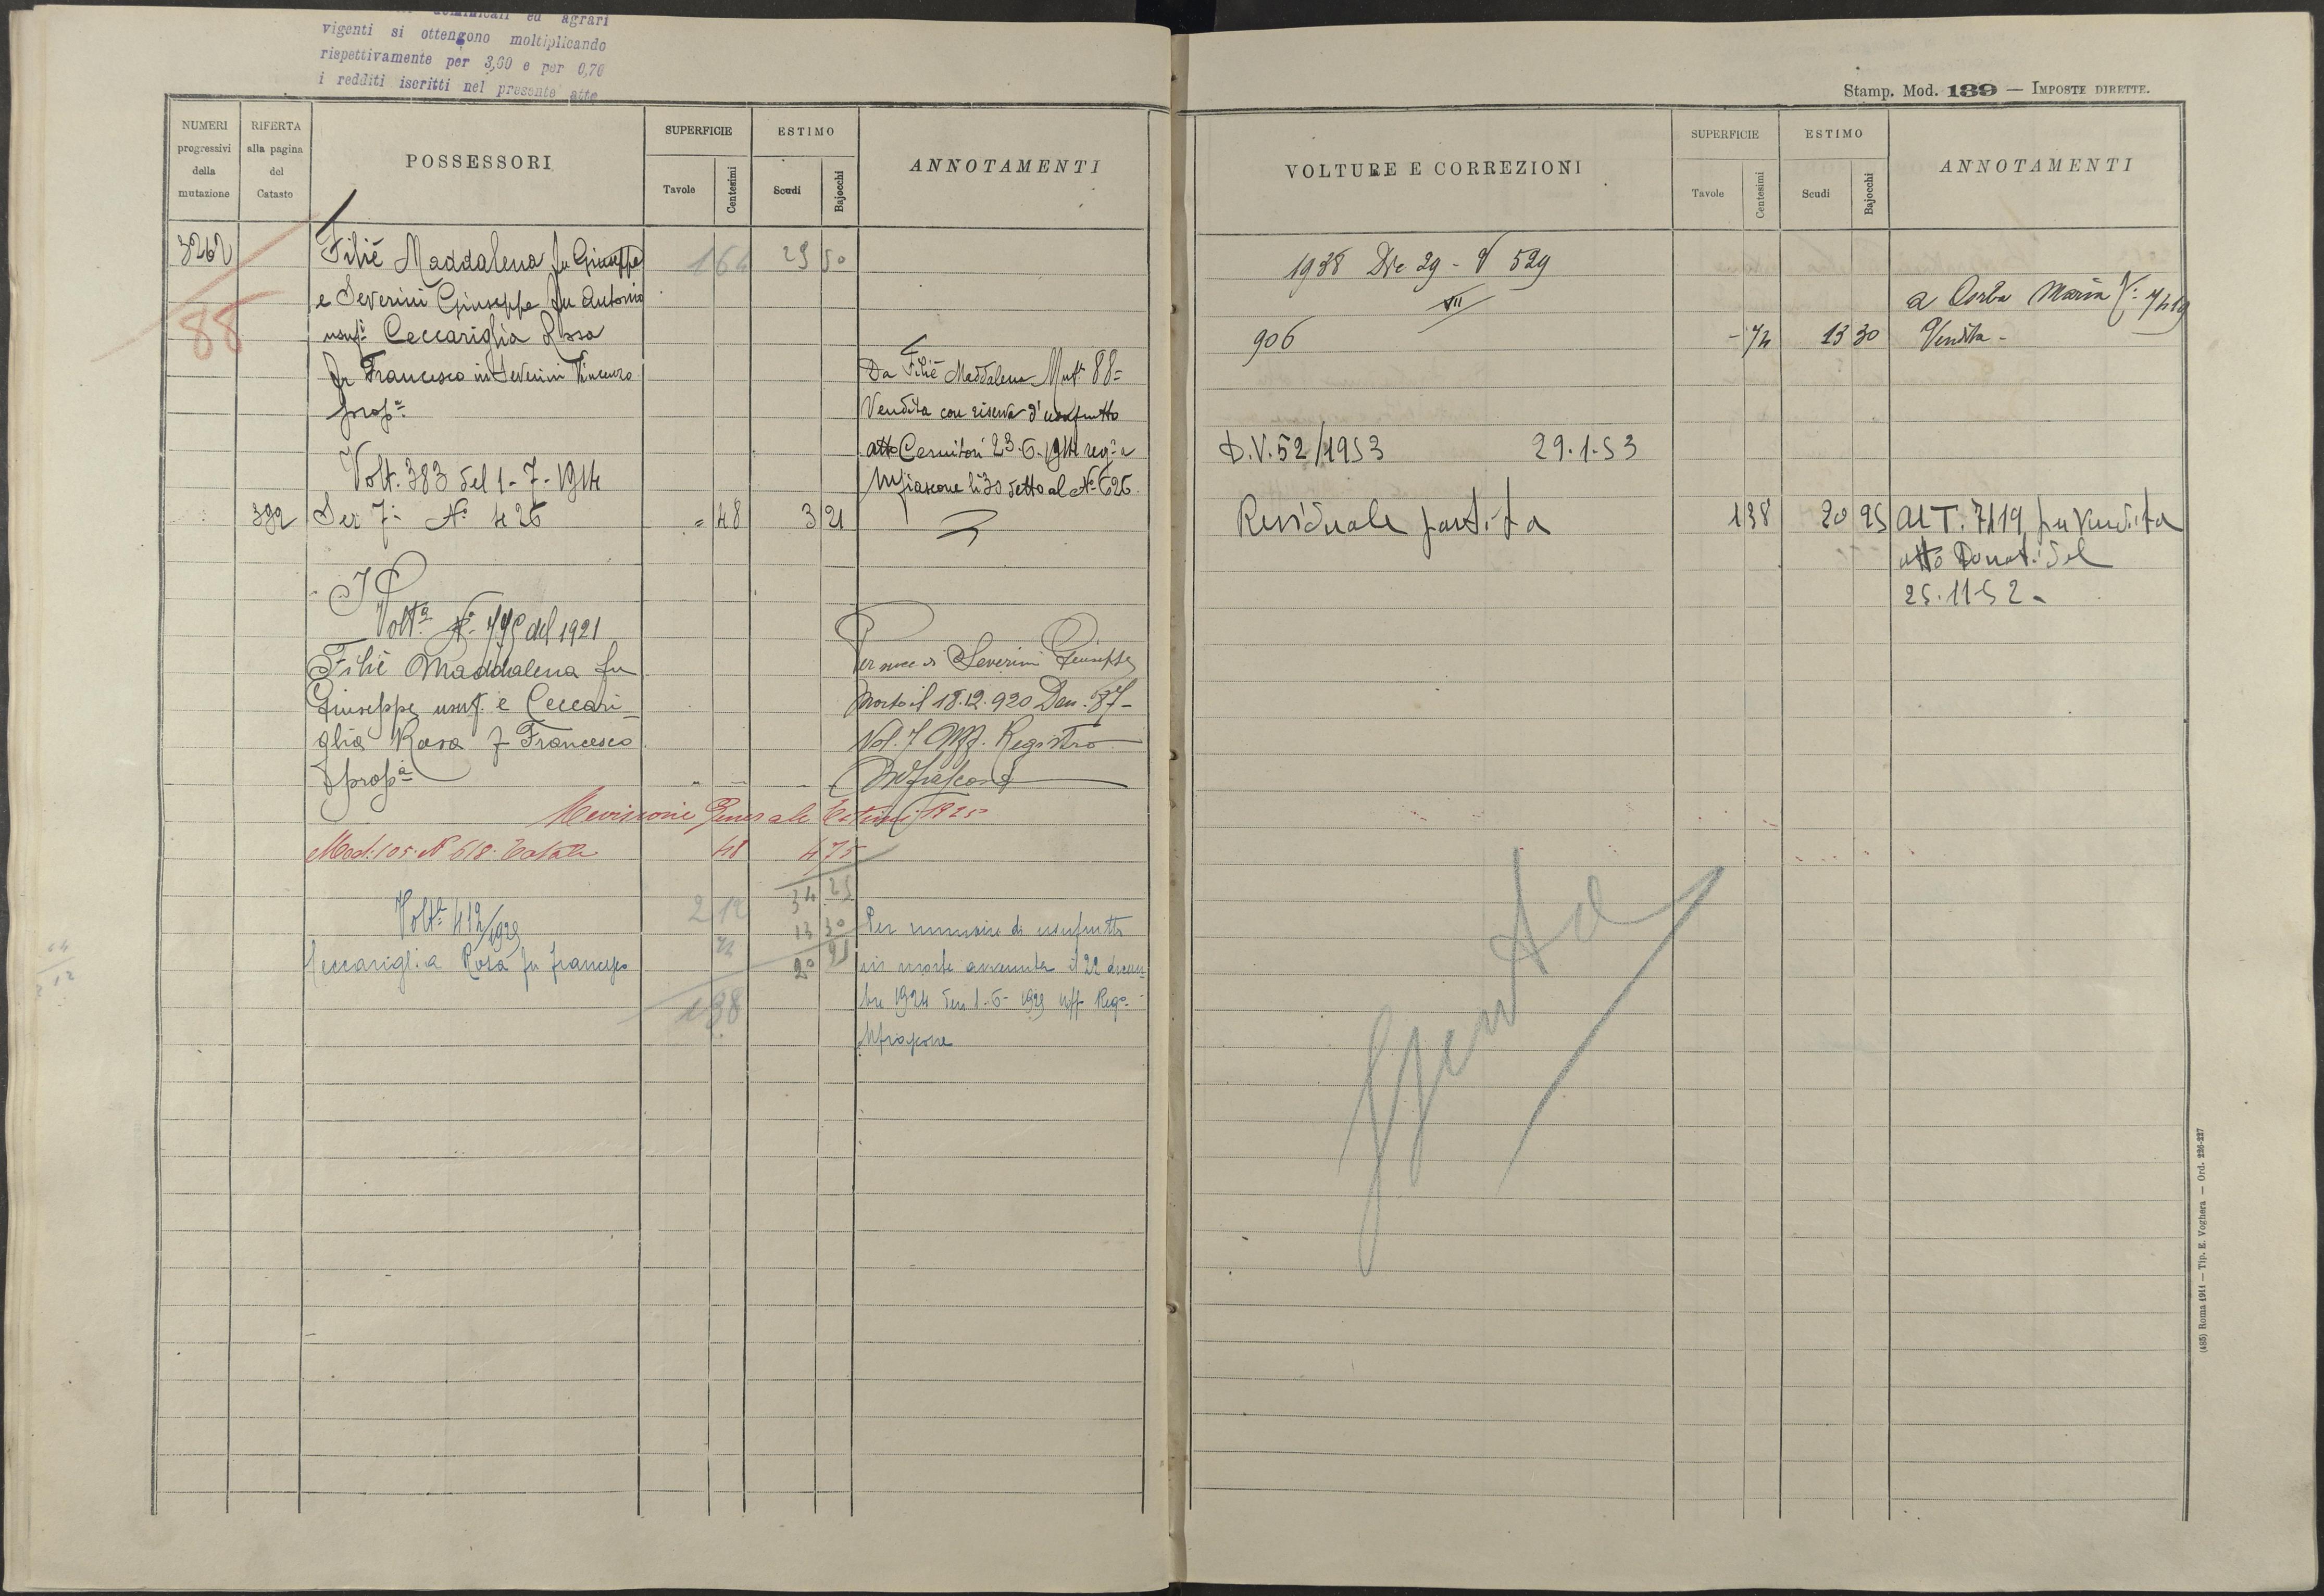 dominicali ed agrari
vigenti si ottengono moltiplicando
rispettivamente per 3,60 e per 0,70
i redditi iscritti nel presente atto
NUMERI progressivi della mutazione
RIFERTA alla pagina del Catasto
POSSESSORI
SUPERFICIE
Tavole
Centesimi
ESTIMO
Scudi
Bajocchi
ANNOTAMENTI
3262
88
Filié Maddalena fu Giuseppe 164 29 50
e Severini Giuseppe fu Antonio
usuf. Ceccariglia Rosa
fu Francesco in Severini Vincenzo
propa
Da Filié Maddalena Mut. 88=
Vendita con riserva d'usufrutto
atto Cernitori 23.6.1914 reg. a
Mfiascone li 30 detto al No 626.
Volt. 383 del 1-7-1914
392 Ser 7a No 426 = 48 3 21
Volta No 775 del 1921
Filié Maddalena fu
Giuseppe usuf. e Ceccari-
glia Rosa f Francesco
propa
Severini Giuseppe
morto il 18.12.920 Den. 87-
Vol. 7 Uff. Registro
Mfiascone
Revisione Generale Estimi 1925
Mod. 105. N 618. 48 4 75
34 25
2 12
13 30
72
20 95
138
Volta 412/1925
Ceccariglia Rosa fu Francesco
Per riunione di usufrutto
in morte avvenuta il 22 dicem-
bre 1924 den 1-6-1925 uff Rego
Mfiascone
Stamp. Mod. 139 — IMPOSTE DIRETTE.
VOLTURE E CORREZIONI
SUPERFICIE
Tavole
Centesimi
ESTIMO
Scudi
Bajocchi
ANNOTAMENTI
1938 Dic 29 - V 529
VII
a Corba Maria 7419
906 - 74 13 30 Vendita -
D.V. 52/1953 29.1.53
Residuale partita 138 20 95 Al T. 7119 per vendita
atto Donati del
25.11.52.
Spenta
(485) Roma 1911 — Tip. E. Voghera — Ord. 226-227